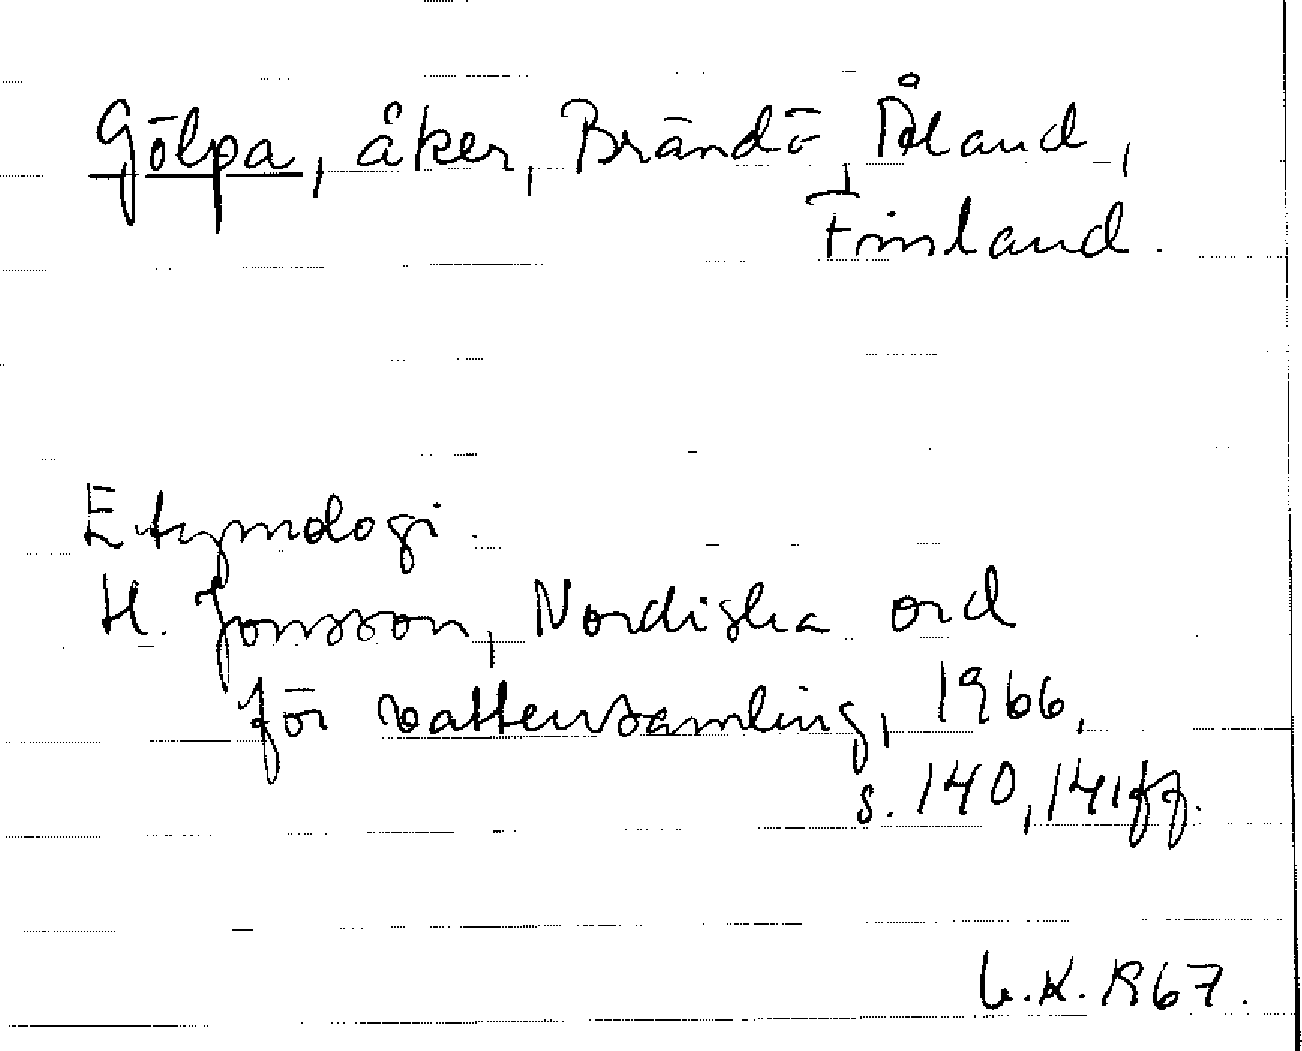 Gölpa, åker, Brändö, Åland,
Finland.
Etymologi.
H. Jonsson, Nordiska ord
för vattensamling, 1966,
s. 140, 141ff.
K. 1967.